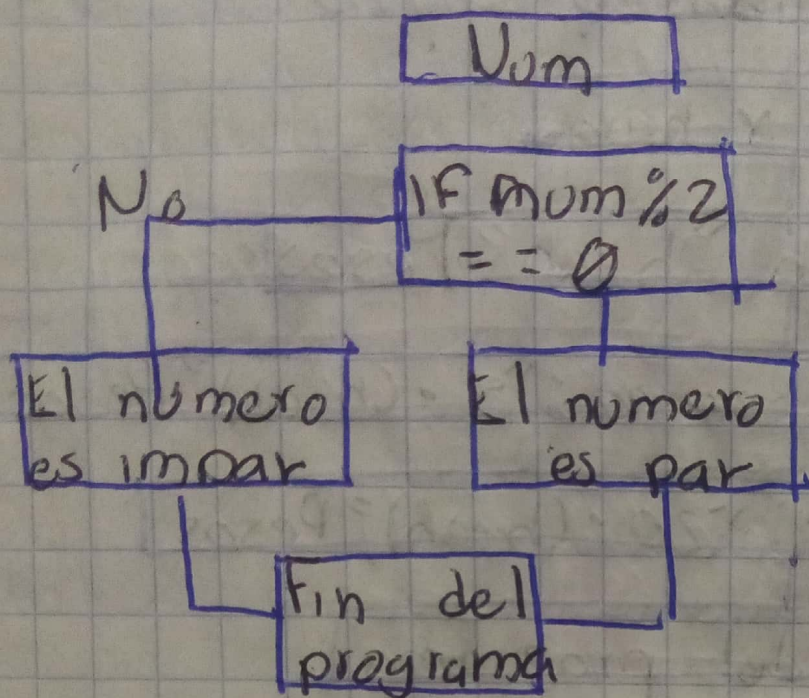 Num
No
IF num%2
== 0
El numero
es impar
El numero
es par
Fin del
programa